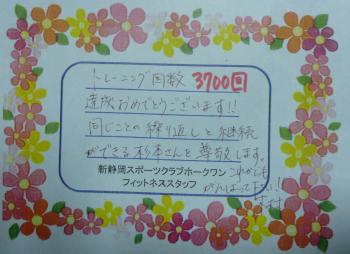 トレーニング回数 3700回
達成おめでとうございます!!
同じことの繰り返しと継続
ができる杉本さんを尊敬します。
新静岡スポーツクラブホークワン
フィットネススタッフ
これからも
がんばって下さい!!